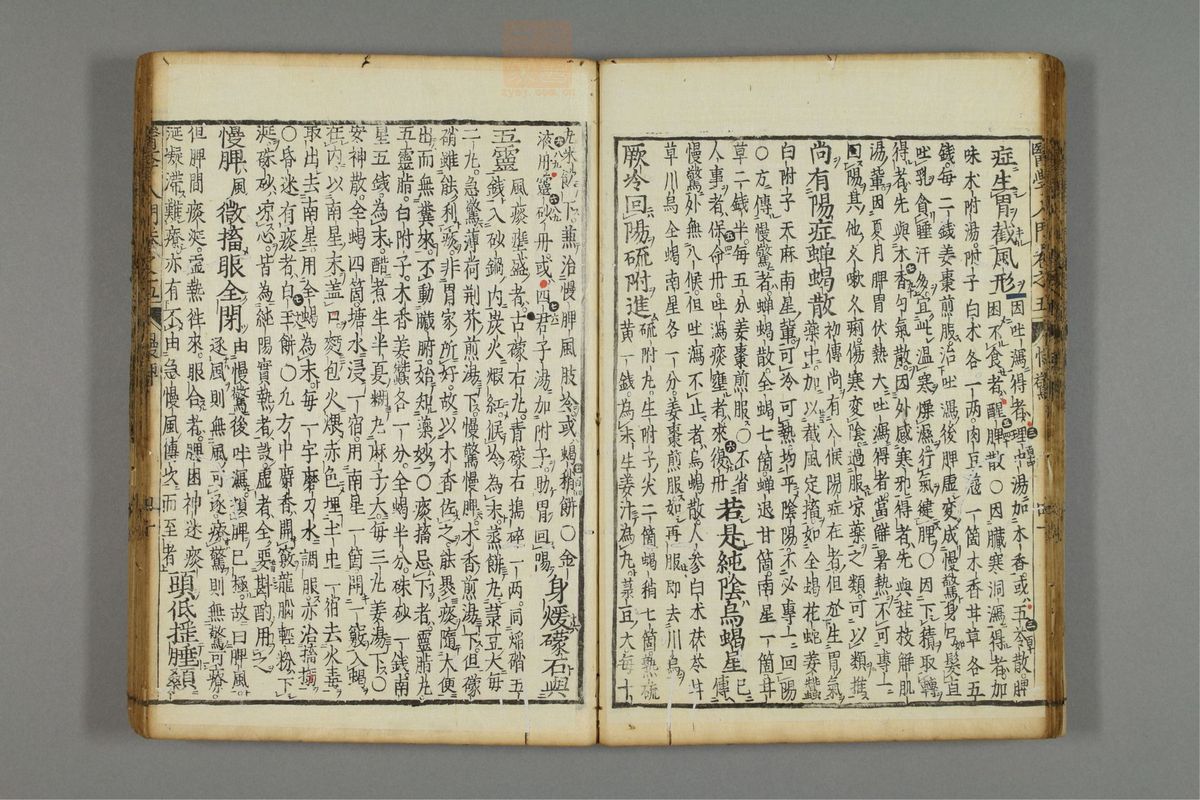 醫學入門卷之五
慢驚
症生胃截風形
因吐瀉得者理中湯加木香或五苓散脾
困不食者醒脾散○因臟寒洞瀉得者加
味朮附湯。附子白朮各一兩。肉豆蔻一箇木香甘草各五
錢。每二錢姜棗煎服。治吐瀉後脾虛變成慢驚。身
吐乳貪睡汗多。宜此溫寒燥濕。行氣健脾○因下積取轉
得者。先與木香勻氣散。因外感寒邪得者。先與桂枝解肌
湯。葷因夏月脾胃伏熱大吐瀉得者。當解暑熱不可專一
回陽其他久嗽久痢傷寒變陰過服涼藥之類可以類推
尚有陽症蟬蝎散
初傳尚有八候陽症在者但於生胃氣
藥中。加以截風定搐如全蝎花蛇姜蠶
白附子天麻南星葷。可冷可熱均平陰陽不必專上回陽
○方傳慢驚者蟬蝎散。全蝎七箇蟬退廿箇南星一箇甘
草二錢半。每五分姜棗煎服○不省
人事者。保命丹。吐瀉痰壅者。來復丹
若是純陰烏蝎星
已傳
慢驚外無八候。但吐瀉不止者烏蝎散。人參白朮茯苓甘
草川烏全蝎南星各一分。姜棗煎服如再服即去川烏
厥冷回陽硫附進
硫附丸。生附子尖二箇蝎稍七箇熱硫
黃一錢。為末生姜汁為丸菉豆大每十
丸米飲下。兼治慢脾風肢冷。或蝎稍餅○金
液丹靈砂丹。或四君子湯加附子。助胃回陽
身煖礞石與
五靈
風痰壅盛者。古礞石丸。青礞石搗碎一兩。同焰硝五
錢入砂鍋內炭火煆紅。候冷為末。蒸餅丸菉豆大每
二丸。急驚薄荷荊芥煎湯下。慢驚慢脾。木香煎湯下。但礞
硝雖能利痰。非胃家所好故以木香佐之。能裹痰隨大便
出而無糞來不動臟腑。始知藥妙○痰搐忌下者。靈脂丸
五靈脂。白附子。木香姜蠶各一分。全蝎半分。硃砂一錢南
星五錢。為末醋煮生半夏糊丸麻子大每三丸姜湯下○
安神散。全蝎四箇塘水浸一宿。用南星一箇開一竅入蝎
在內。以南星末蓋口。麪包火煨赤色埋土中一宿去火毒
取出去南星。用全蝎為末。每一字磨刀水調服。亦治搐
○昏迷有痰者。白玉餅○凡方中麝香開竅龍腦輕粉下
涎硃砂凉心。皆為純陽實熱者設虛者全要斟酌用之
慢脾風微搐眼全閉
由慢驚後吐瀉損脾已極。故曰脾風。
逐風則無風可逐療驚則無驚可療。
但脾間痰涎虛熱徃來。眼合者。脾困神迷痰
涎凝滯難療。亦有不由急慢風傳次。而至者
頭低摇睡額
四十